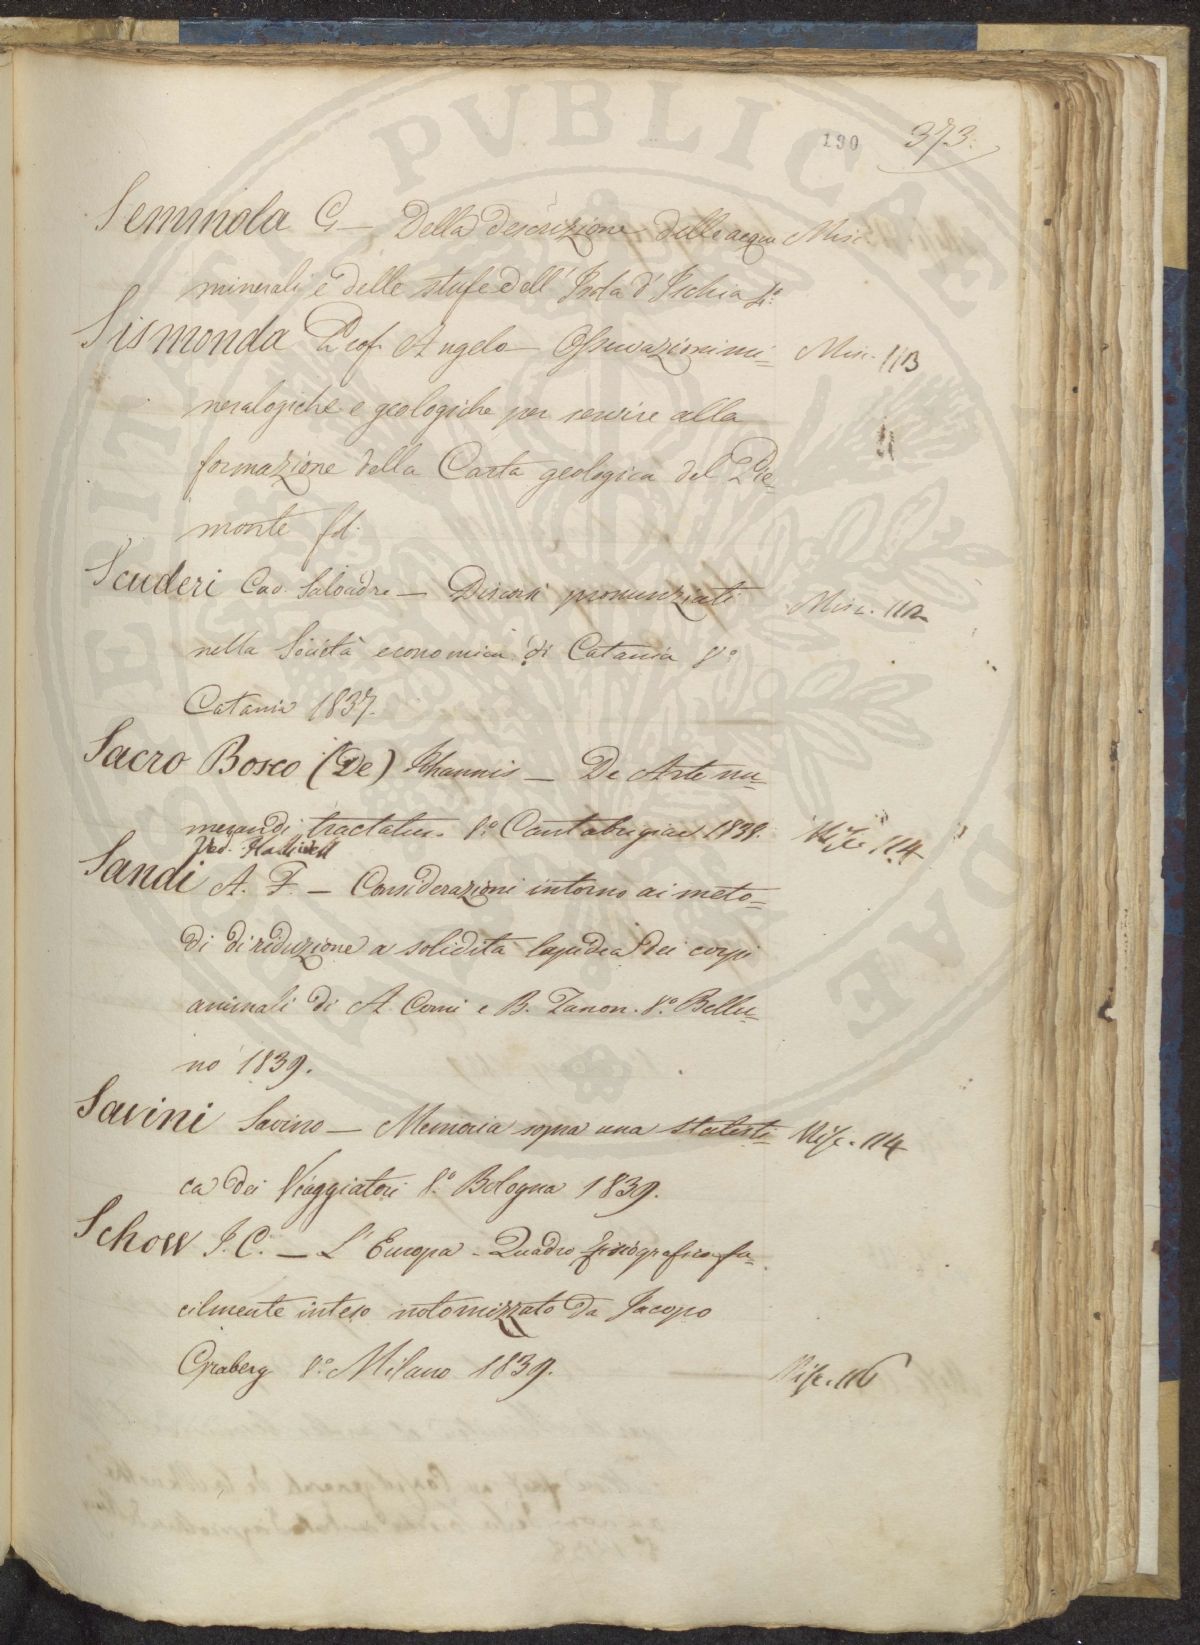 190 373.
Semmola G — Della descrizione delle acque Misc.
minerali e delle stufe dell' Isola d'Ischia 4.º
Sismonda Prof. Angelo — Osservazioni mi= Misc. 113
neralogiche e geologiche per servire alla
formazione della Carta geologica del Pie=
monte fol.
Scuderi Cav. Salvadre — Discorsi pronunziati Misc. 112
nella Società economica di Catania 8º
Catania 1837.
Sacro Bosco (De) Johannis — De Arte nu=
merandi tractatus. 8.º Cantabrigiae 1838. Misc. 114
Halliwell
Sandi A. F. — Considerazioni intorno ai meto=
di di riduzione a solidità lapidea dei corpi
animali di A. Comi e B. Zanon. 8.º Bellu=
no 1839.
Savini Savino — Memoria sopra una statisti= Misc. 114
ca dei Viaggiatori 8.º Bologna 1839.
Schow J. C. — L'Europa - Quadro fisiografico fa=
cilmente inteso notomizzato da Jacopo
Graberg 8.º Milano 1839. Misc. 116